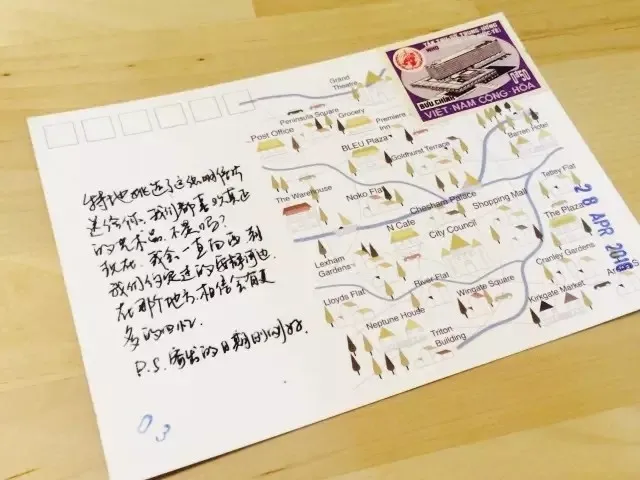 Grand Theatre
Peninsula Square
Grocery
Post Office
Premiere Inn
BLEU Plaza
Goldhurst Terrace
Barren Hotel
The Warehouse
Noko Flat
Tatley Flat
Chesham Palace
Shopping Mall
N Cafe
City Council
The Plaza
Lexham Gardens
Cranley Gardens
River Flat
Wingate Square
Lloyds Flat
Kirkgate Market
Neptune House
Triton Building
WHO
BƯU CHÍNH
0đ50
VIỆT-NAM CỘNG-HÒA
28 APR 201
特地挑选了这张明信片
送给你,我们都喜欢真正
的艺术品,不是吗?
现在,我会一直向西,到
我们约定过的
在那个地方,相信会有更
多的回忆.
P.S.寄出的日期刚刚好
03